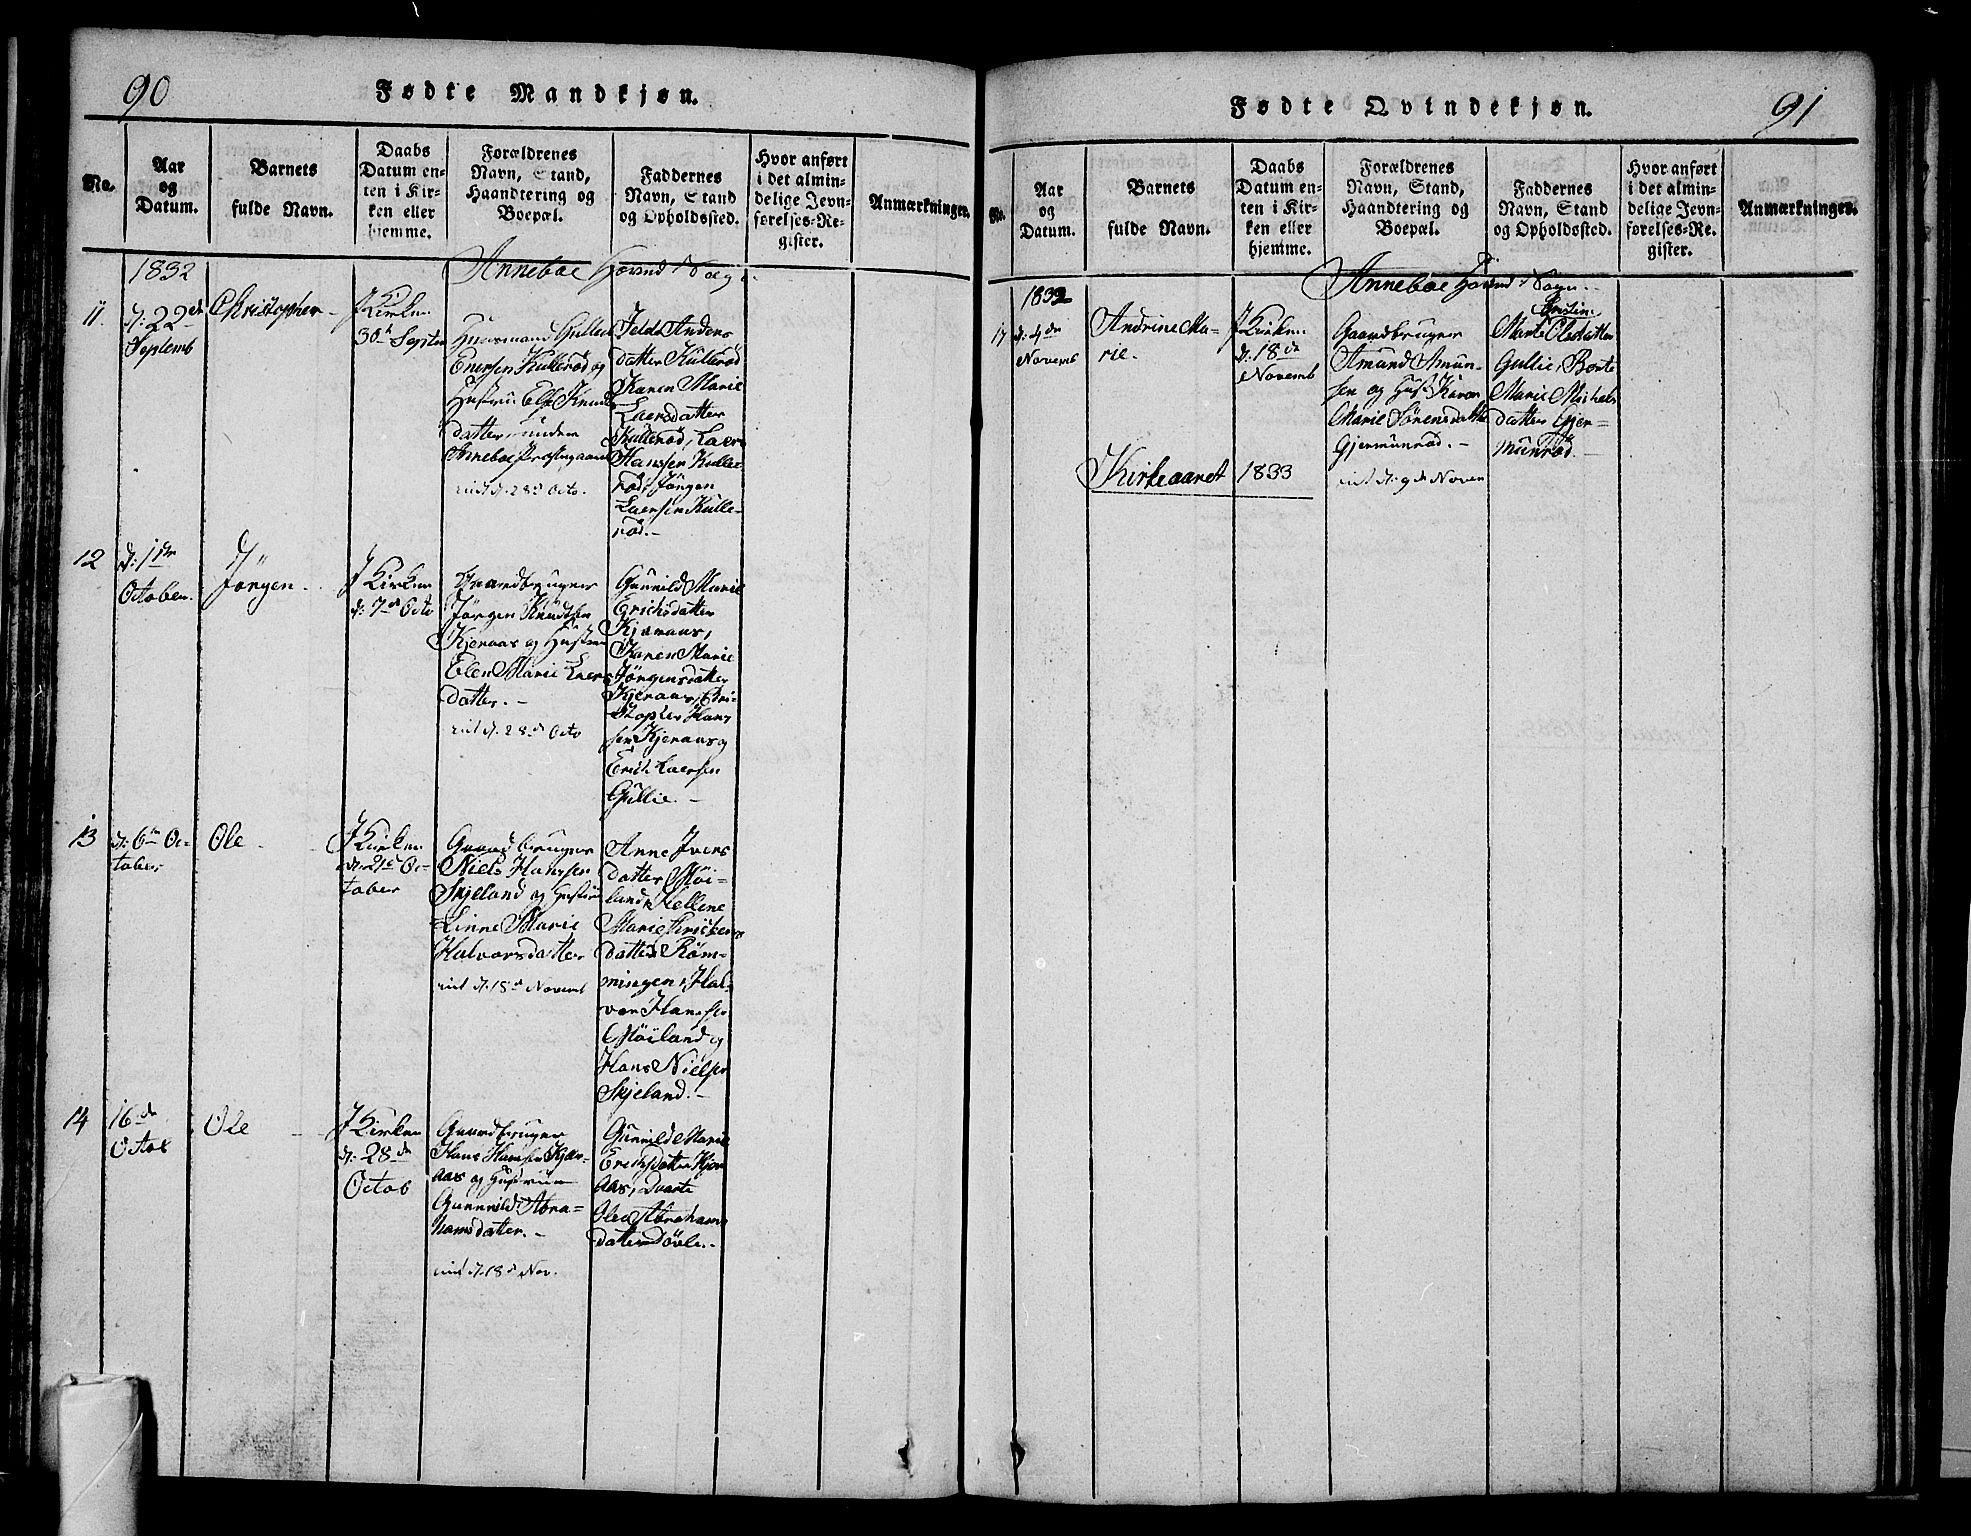 90
Fødte Mandkjøn.
No.
Aar
og
Datum.
Barnets
fulde Navn.
Daabs
Datum en-
ten i Kir-
ken eller
hjemme.
Forældrenes
Navn, Stand,
Haandtering og
Boepæl.
Faddernes
Navn, Stand
og Opholdssted.
Hvor anført
i det almin-
delige Jevn-
førelses-Re-
gister.
Anmærkninger.
1832
Anneboe Hovind Sogn
11.
d: 22de
Septemb
Christopher
I Kirken
30te Septem
Huusmand Gullik
Enersen Kullerød og
Hustrue Else Knuds
datter under
Anneboe Præstegaard
d. 28de Octo.
Anders
datter Kullerød
Karen Marie
Laersdatter
Kullerød, Laers
Hanssen Kulle-
rød, Jørgen
Laersen Kulle-
rød.-
12
d: 1ste
October.
Jørgen.
I Kirken
d: 7de Octo
Gaardbruger
Jørgen Knudsen
Kjeraas og Hustrue
Elen Marie Laers
datter.-
d. 28de Octo
Gunnild Marie
Erichsdatter
Kjeraas,
Karen Marie
Jørgensdatter
Kjeraas, Chri-
stopher Hans
sen Kjeraas og
Erich Laersen
Gullie.-
13
d: 6te Oc-
tober
Ole
I Kirken
d: 21de Oc-
tober
Gaardbruger
Niels Hanssen
Skjeland og Hustrue
Linne Marie
Halvorsdatter
d. 18de Novemb
Anne Ivers
datter Møi-
land, Kellene
Marie
datter Røm-
mingen, Hal-
vor Hanssen
Møiland og
Hans Nielsen
Skjeland.-
14
16de
Octob
Ole
I Kirken
d: 28de
Octob
Gaardbruger
Hans Hansen Kjær-
aas og Hustrue
Gunnild Abra-
hamsdatter.-
d. 18de Nov.
Gunnild Marie
Erichsdatter Kjer
aas, Dorte
Olea Abrahams
datter Døvle.-
Fødte Qvindekjøn.
91
No.
Aar
og
Datum.
Barnets
fulde Navn.
Daabs
Datum en-
ten i Kir-
ken eller
hjemme.
Forældrenes
Navn, Stand,
Haandtering og
Boepæl.
Faddernes
Navn, Stand
og Opholdssted.
Hvor anført
i det almin-
delige Jevn-
førelses-Re-
gister.
Anmærkninger.
Anneboe Hovind Sogn.
1832
17
d: 4de
Novemb
Andrine Ma-
rie.
I Kirken
d: 18de
Novemb
Gaardbruger
Amund Amun-
sen og Hust: Karen
Marie Sørensdatter
Gjermunrød.-
d. 9de Novem
Kristine
Marte Olsdatter
Gullie, Berte
Marie Michels
datter Gjer-
munrød.-
Kirkeaaret 1833